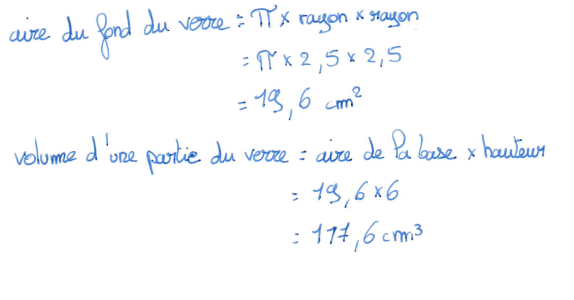 aire du fond du verre = π × rayon × rayon
= π × 2,5 × 2,5
= 19,6 cm²
volume d'une partie du verre = aire de la base × hauteur
= 19,6 × 6
= 117,6 cm³